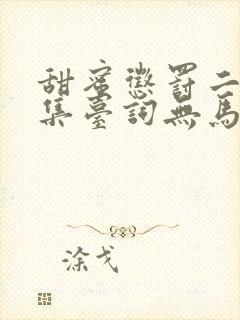 甜蜜懲罰二
集臺詞無馬
涂戈